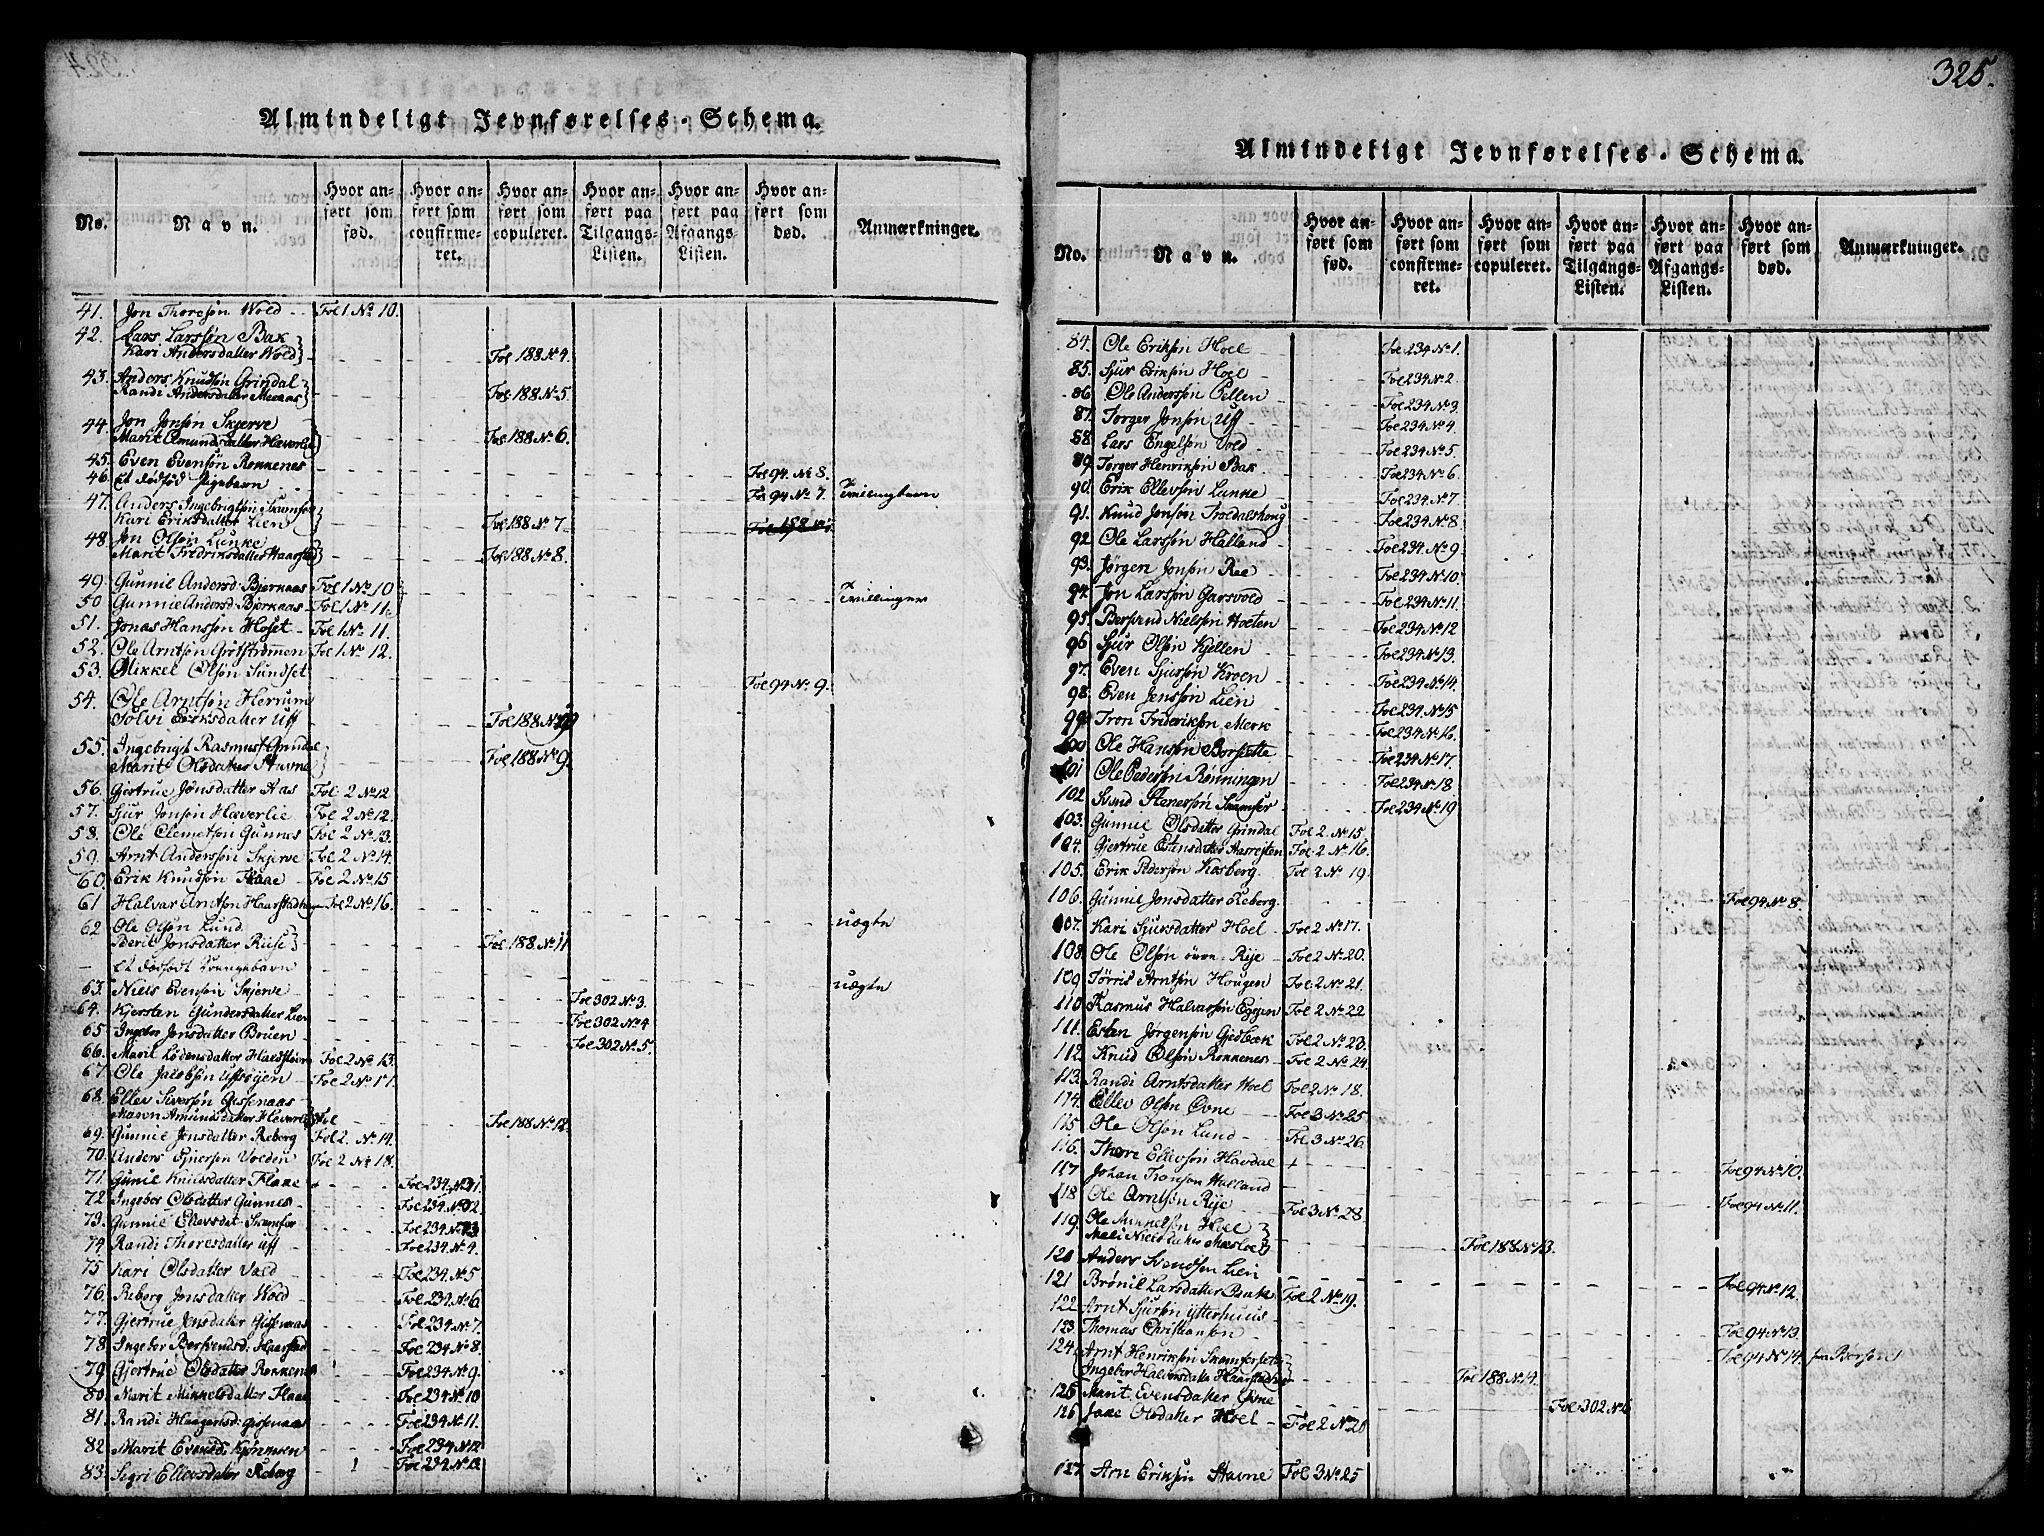 Almindeligt Jevnførelses-Schema.
No.
Navn.
Hvor anført som fød.
Hvor anført som confirmeret.
Hvor anført som copuleret.
Hvor anført paa Tilgangs-Listen.
Hvor anført paa Afgangs-Listen.
Hvor anført som død.
Anmærkninger.
41. Jon Thoresøn Wold Fol 1 No 10.
42. Lars Larssøn Bak
Kari Andersdatter Wold Fol 188 No 4.
43. Anders Knudsøn Grindal
Randi Andersdatter Meraas Fol 188 No 5
44. Jon Jonsøn Skjerve
Marit Amundsdatter Hæverlie Fol 188 No 6.
45. Even Evensøn Rønnenes Fol 94 No 8.
46. Et dødfød Pigebarn Fol 94 No 7. Tvillingbarn
47. Anders Ingebrigtsøn Skamfer
Kari Eriksdatter Lien Fol 188 No 7.
48. Jon Olsøn Lunke
Marit Fredriksdatter Haarstad Fol 188 No 8.
49. Gunnil Andersd: Bjørnaas Fol 1 No 10
50. Gunnil Andersd Bjørnaas Fol 1 No 11. Tvillinger
51. Jonas Hanssøn Hoset Fol 1 No 11.
52. Ole Arntsøn Grøtstrømmen Fol 1 No 12.
53. Mikkel Olsøn Sundset Fol 94 No 9.
54. Ole Arntsøn Herrum
Solvi Eriksdatter Uff Fol 188 No
55. Ingebrigt Rasmus: Grindal
Marit Olsdatter Stavne Fol 188 No 9.
56. Gjertrue Jonsdatter Aas Fol 2 No 12
57. Sjur Jonsøn Hæverlie Fol 2 No 12.
58. Ole Clemetsøn Gunnes Fol 2 No 13.
59. Arnt Anderssøn Skjerve Fol 2 No 14.
60. Erik Knudsøn Flaae Fol 2 No 15
61 Halvar Arntsøn Haarstad Fol 2 No 16.
62 Ole Olsøn Lund. uægte
Berit Jonsdatter Riise Fol 188 No 11
Et dødfødt Drengebarn uægte
63. Niels Evensøn Skjerve Fol 302 No 3.
64. Kjersten Gundersdatter Lien Fol 302 No 4
65 Ingebor Jonsdatter Bruen Fol 302 No 5.
66. Maril Lodensdatter Fol 2 No 13.
67. Ole Jacobsøn Uffsøyen Fol 2 No 17.
68. Ellev Siversøn Gissenaas
Maren Amundsdatter Hæverlie Fol 188 No 12.
69. Gunnil Jonsdatter Reberg Fol 2. No 14.
70. Anders Ejnersøn Volden Fol 2 No 18.
71. Gunil Knudsdatter Flaae Fol 234 No 1.
72. Ingebor Olsdatter Gunnes Fol 234 No 2.
73. Gunnil Ellevsdat: Skamfer Fol 234 No 3
74. Randi Thoresdatter Uff Fol 234 No 4.
75 Kari Olsdatter Vold Fol 234 No 5
76. Reborg Jonsdatter Wold Fol 234 No 6
77. Gjertrue Jonsdatter Gissenaas Fol 234 No 7.
78. Ingebor Bersvendsd: Haarstad Fol 234 No 8.
79. Gjertrue Olsdatter Rønnenes Fol 234 No 9.
80. Marit Mikkelsdatter Flaae Fol 234 No 10
81. Randi Haagensd: Gissenaas Fol 234 No 11.
82. Marit Evensd: Fol 234 No 12
83. Segri Ellevsdatter Reberg Fol 234 No 13
325.
Almindeligt Jevnførelses-Schema.
No.
Navn.
Hvor anført som fød.
Hvor anført som confirmeret.
Hvor anført som copuleret.
Hvor anført paa Tilgangs-Listen.
Hvor anført paa Afgangs-Listen.
Hvor anført som død.
Anmærkninger.
84. Ole Eriksøn Hoel Fol 234 No 1.
85. Sjur Eriksøn Hoel Fol 234 No 2.
86. Ole Anderssøn Fol 234 No 3.
87. Torger Jonsøn Uff Fol 234 No 4.
88. Lars Engelsøn Vold Fol 234 No 5.
89. Torger Henriksøn Bak Fol 234 No 6.
90. Erik Ellevsøn Lunke Fol 234 No 7.
91. Knud Jonsøn Troldalshoug Fol 234 No 8
92. Ole Larssøn Halland Fol 234 No 9
93. Jørgen Jonsøn Ree Fol 234 No 10.
94. Jon Larssøn Garsvold Fol 234 No 11.
95. Bersvend Nielssøn Hoeten Fol 234 No 12
96 Sjur Olsøn Kjellen Fol 234 No 13.
97. Even Sjursøn Kroen Fol 234 No 14.
98. Even Jenssøn Lien Fol 234 No 15
99. Tron Frideriksøn Merk Fol 234 No 16.
100 Ole Hansøn Borsætte Fol 234 No 17.
101 Ole Pedersøn Rønningen Fol 234 No 18.
102 Svend Stenersøn Skamfer Fol 234 No 19
103. Gunnil Olsdatter Grindal Fol 2 No 15.
104. Gjertrue Estensdatter Fol 2 No 16.
105. Erik Pedersøn Kosberg. Fol 2 No 19.
106. Gunnil Jonsdatter Reberg. Fol 94 No 8.
107. Kari Sjursdatter Hoel Fol 2 No 17.
108. Ole Olsøn øvre Rije Fol 2 No 20.
109 Tørris Arntsøn Hougen Fol 2 No 21.
110 Rasmus Halvarsøn Eggen Fol 2 No 22
111. Esten Jørgensøn Gjedbæk Fol 2 No 23.
112. Knud Olsøn Rønnenes Fol 2 No 24.
113. Randi Arntsdatter Hoel Fol 2 No 18.
114. Ellev Olsøn Øvne Fol 3 No 25.
115 Ole Olsøn Lund Fol 3 No 26.
116. Thore Ellevsøn Havdal Fol 94 No 10.
117 Johan Tronsøn Halland Fol 94 No 11.
118. Ole Arntsøn Rije Fol 3 No 28.
119. Ole Mikkelsøn Hoel
Mali Nielsdatter Fol 188 No 13.
120 Anders Svendsøn Lien Fol 94 No 12.
121 Brønil Larsdatter Baak Fol 2 No 19.
122 Arnt Sjursøn ytterhuus Fol 94 No 13.
123. Thomas Christiansøn Fol 94 No 14.
124. Arnt Henriksøn Skamfersætte
Ingebor Halversdatter Haarstad Fol 188 No 14.
125 Marit Evensdatter Øvne Fol 302 No 6
126. Jane Olsdatter Hoel Fol 2 No 20
127. Arn Eriksøn Stavne Fol 3 No 25